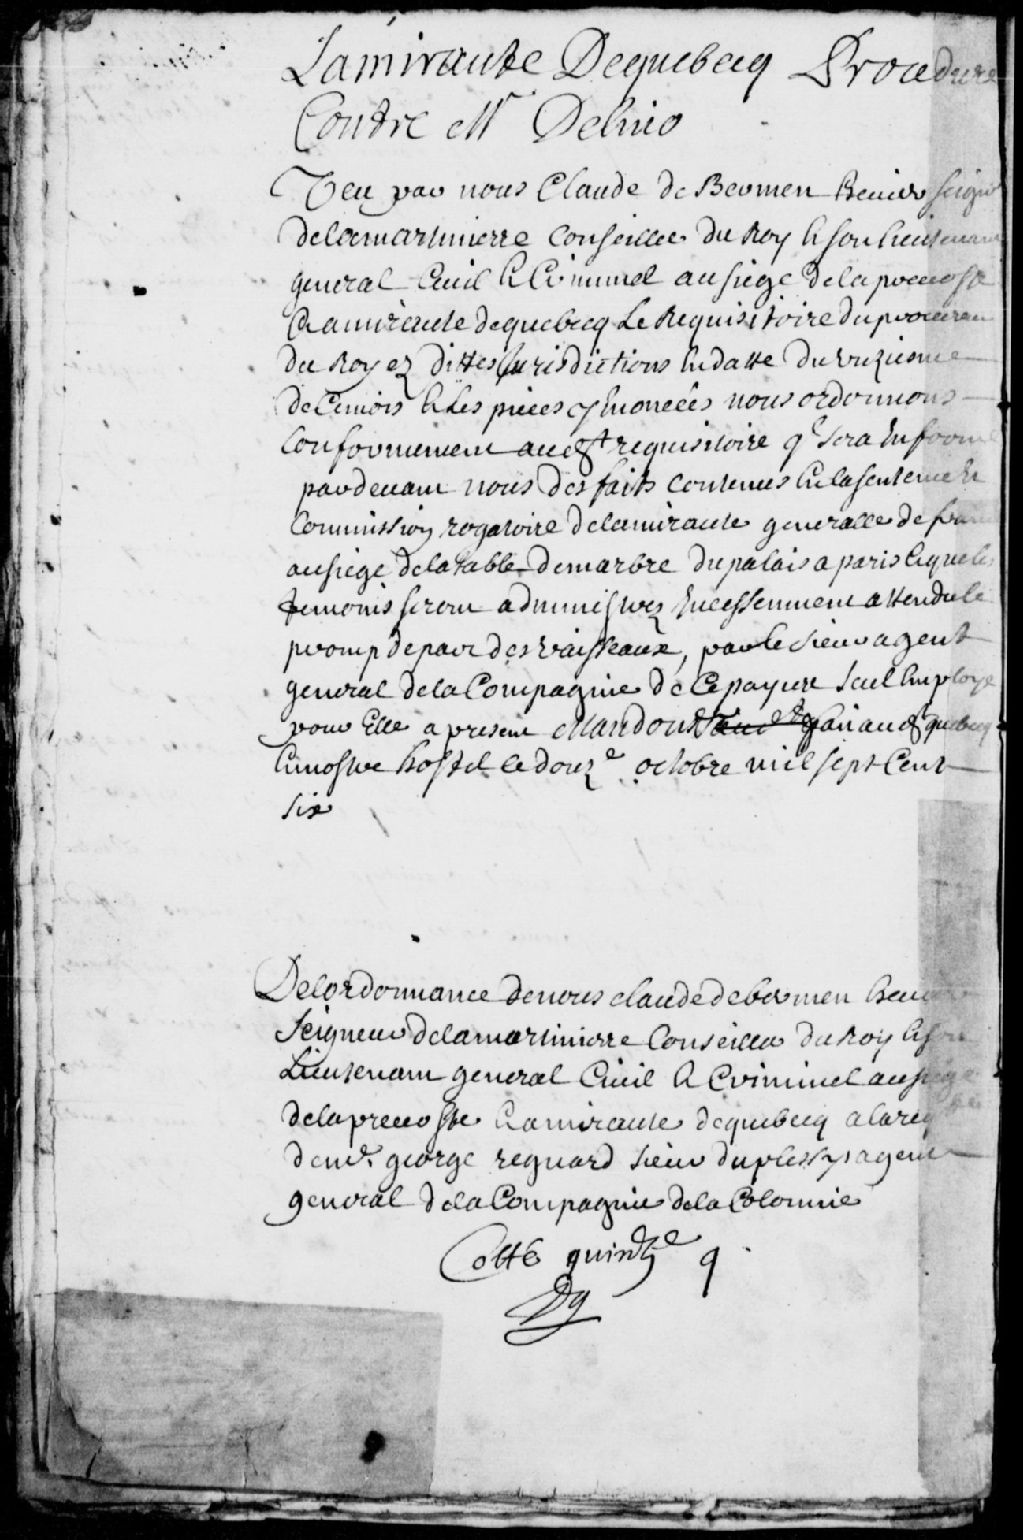 Lamiraute Dequebecq Procedure
Contre Mr Delino
Veu par nous Claude de Bermen Ecuier seignr
delamartinierre Conseiller du Roy & son lieutenant
general Ciuil & Criminel au siege de la preuosté
& amiraute dequebecq Le Requisitoire du procureur
du Roy ez dittes Jurisdictions En datte du unziesme
de Cemois & Les pieces y Enoncées nous ordonnons
Conformement audt requisitoire ql sera Informé
pardeuant nous des faits contenues En la sentence Et
Commission rogatoire delamiraute generalle de france
au siege de la table demarbre du palais a paris Lequels
temoins seront administrez Incessemment attendu le
promp depart des vaisseaux, par le sieur agent
general de la Compagnie de Cepayis seul Employé
pour Elle a present Mandons fait audt quebecq
En nostre hostel le douze octobre mil sept Cent
six
De lordonnance de nous claude debermen Ecuier
Seigneur delamartinierre Conseiller du Roy & son
Lieutenant general Ciuil & Criminel au siege
de la preuosté & amiraute dequebecq a la reqte
de mr. george regnard sieur duplessys agent
general de la Compagnie de la Colonnie
Cotté quinze q
Dq